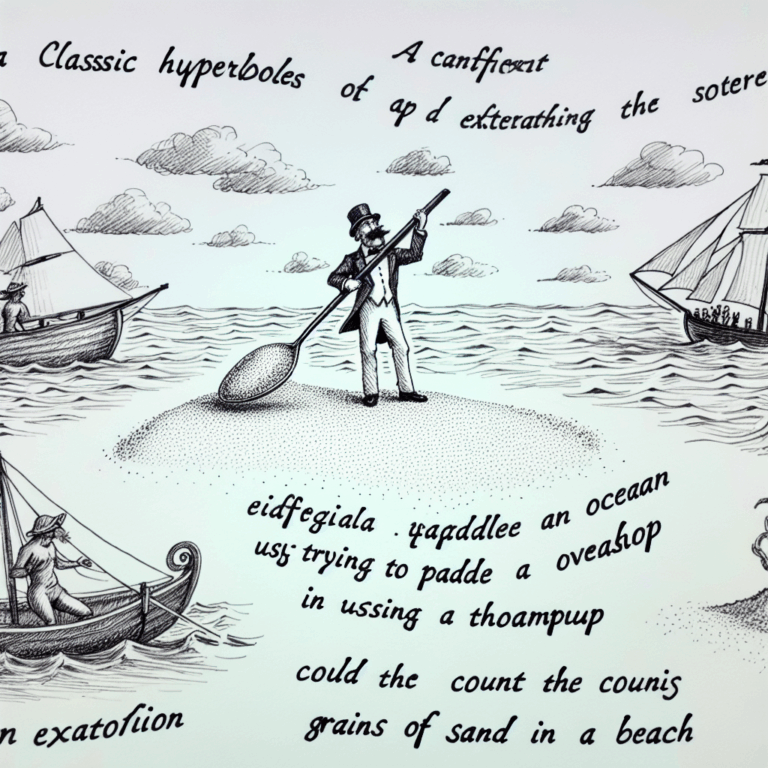 Classsic hyperboles of
A
ap d exterathing the
eidfegiala . yapddlee an oceaan
usj trying to padde a oveahop
in ussing a thoampuup
could the count the counis
grains of sand in a beach
n exatofiion